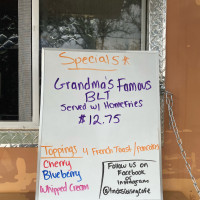 Specials *
Grandma's Famous
BLT
Served w/ Homefries
$12.75
Toppings 4 French Toast / pancakes
Cherry
Blueberry
Whipped Cream
Follow us on
Facebook
or
Instagram